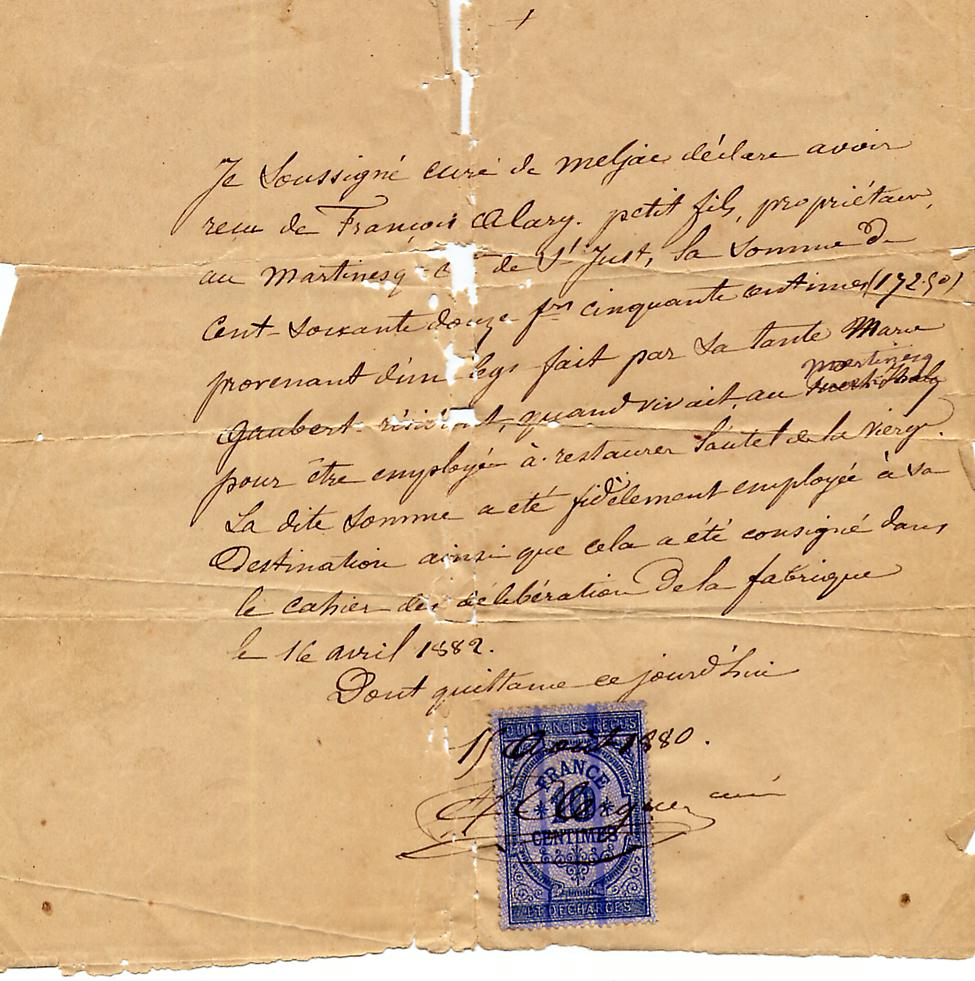 Je Soussigné curé de meljac déclare avoir
recu de François Alary. petit fils, propriétaire,
au Martinesq de St Just, la Somme de
Cent-Soixante douze frs cinquante centimes (172.50)
provenant d'un legs fait par Sa tante Marie
martinesq
Gaubert quand vivait, au
pour être employée à restaurer l'autel de la vierge.
La dite Somme a été fidèlement employée à Sa
Destination ainsi que cela a été consigné dans
le cahier des délibération De la fabrique
le 16 avril 1882.
Dont quittance ce jourd'hui
QUITTANCES REÇUS
15 Août 1880.
FRANCE
10
curé
CENTIMES
ET DÉCHARGES